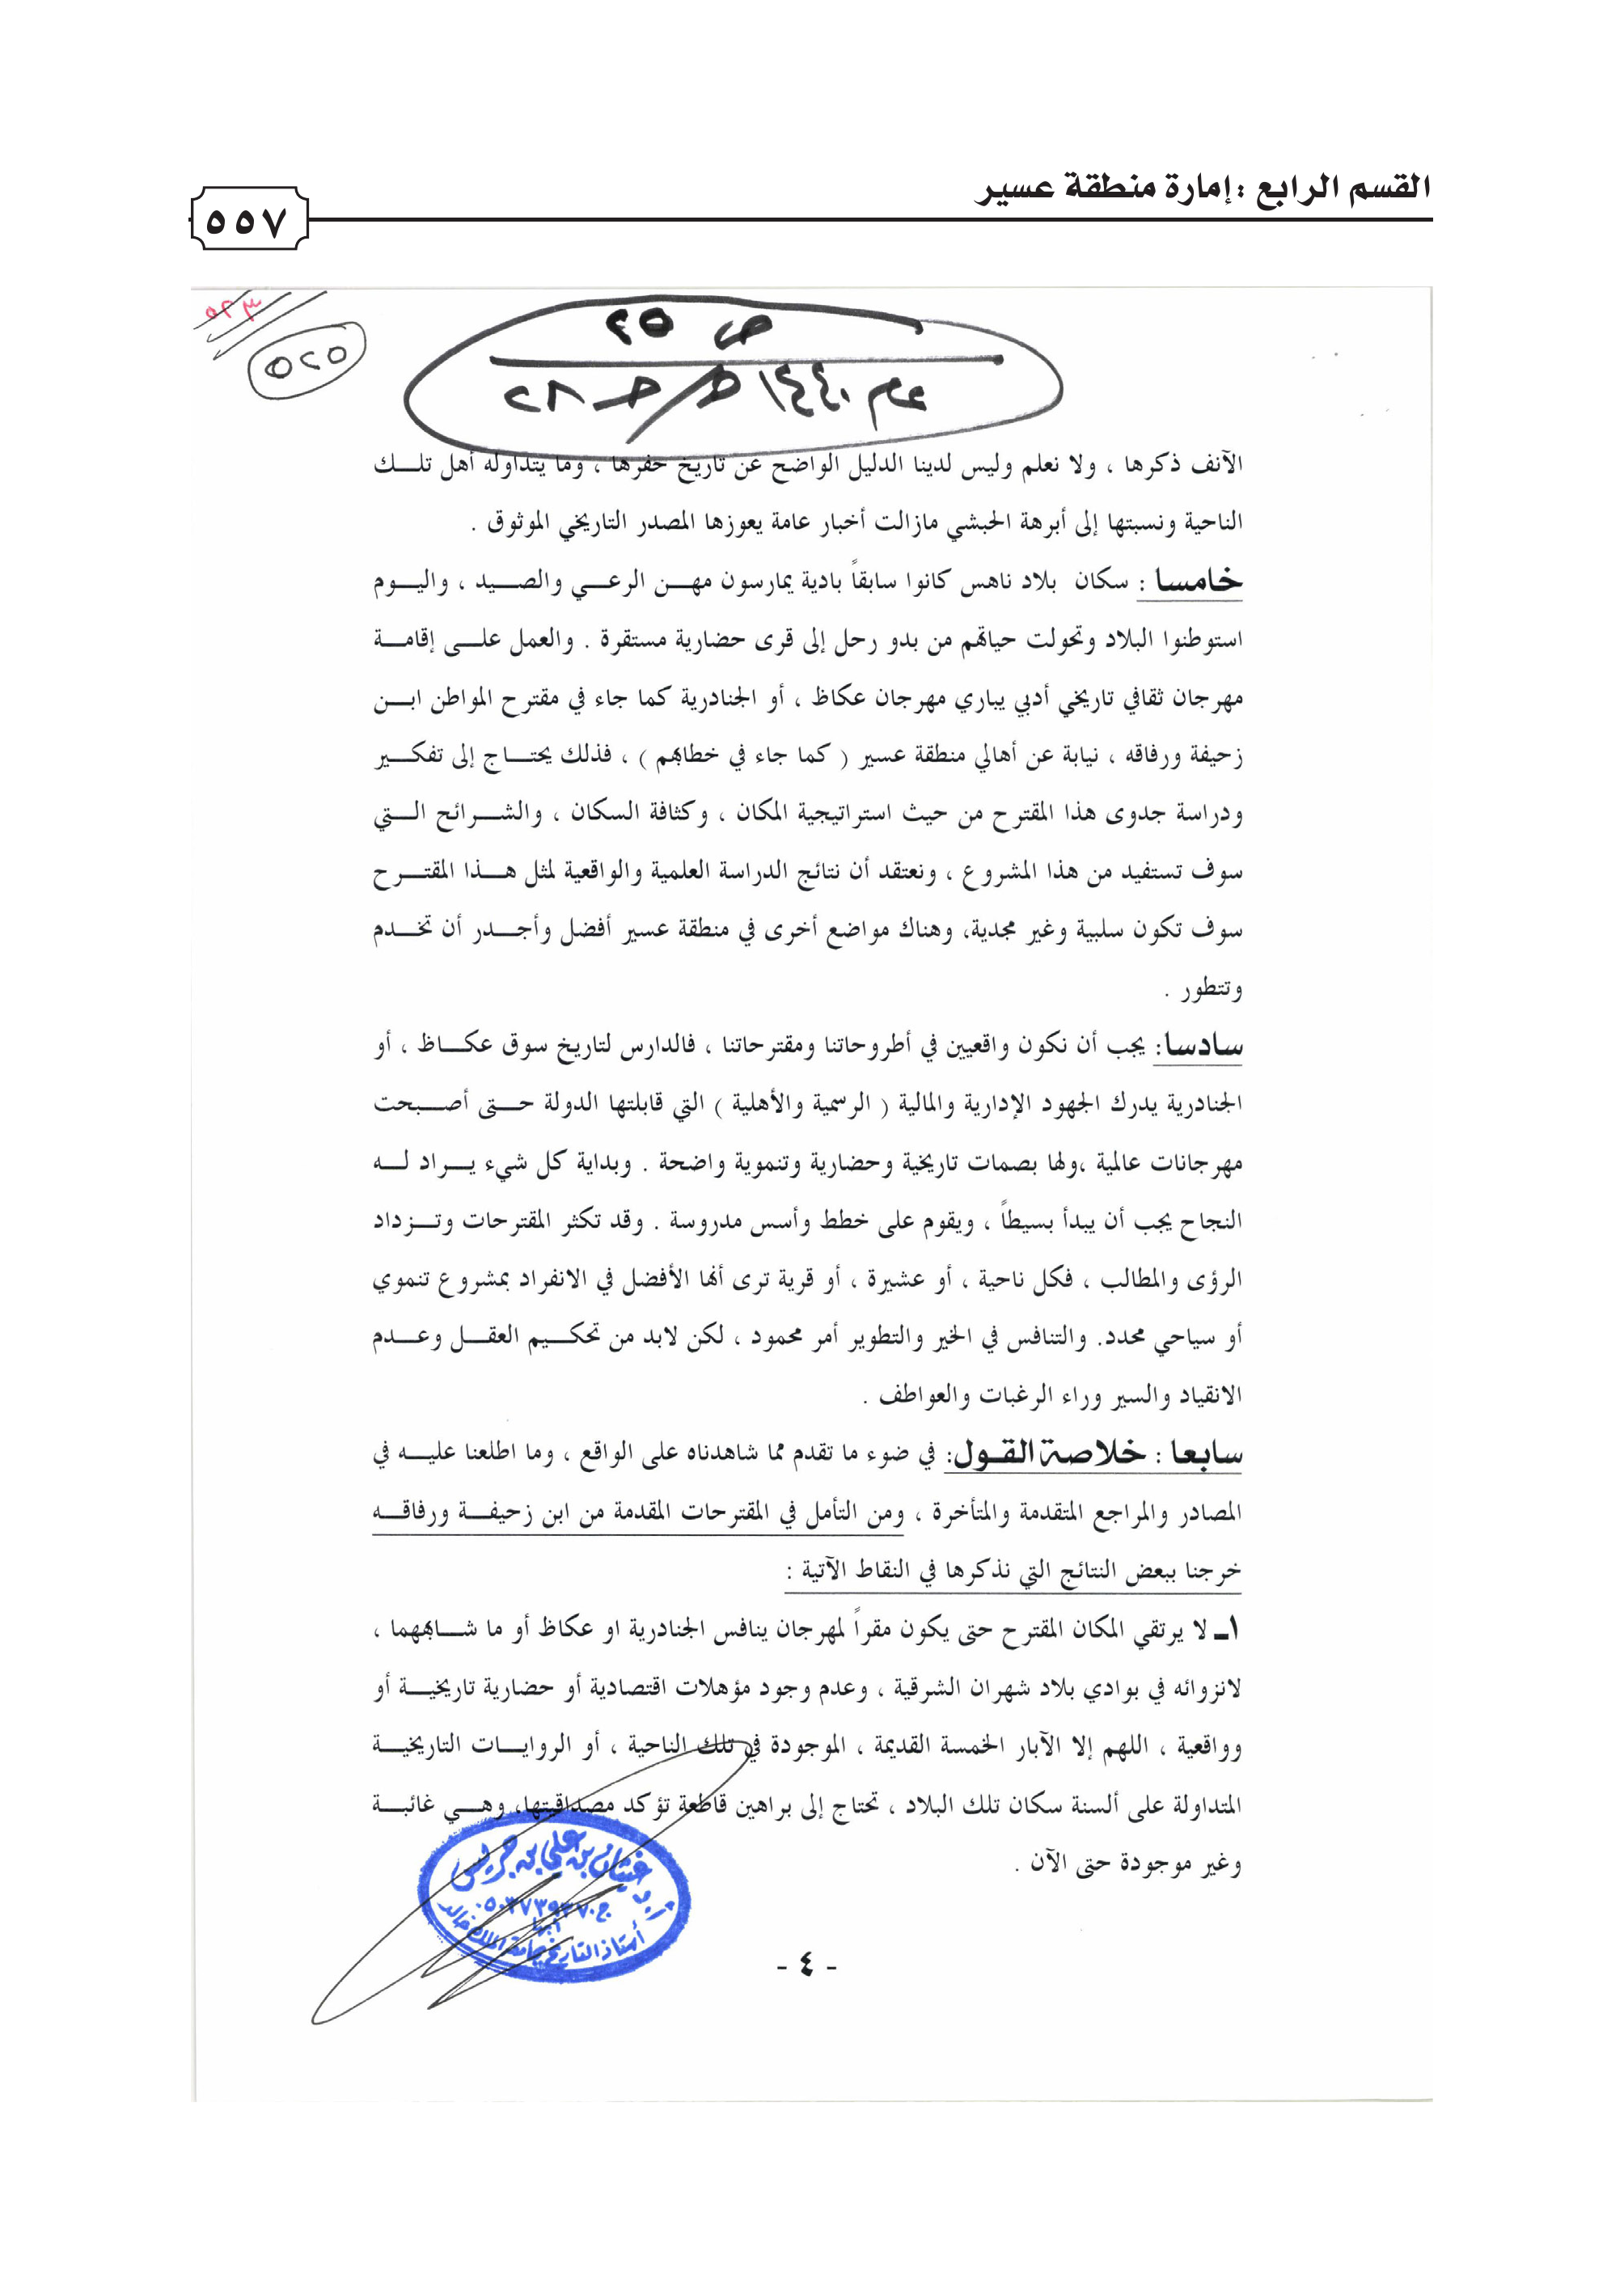 القسم الرابع : إمارة منطقة عسير
٥٥٧
٥٢٥
ص ٢٥
عام ١٤٤٠هـ / جـ ٢٨
الآنف ذكرها ، ولا نعلم وليس لدينا الدليل الواضح عن تاريخ حفرها ، وما يتداوله أهل تلك
الناحية ونسبتها إلى أبرهة الحبشي مازالت أخبار عامة يعوزها المصدر التاريخي الموثوق .
خامسا : سكان بلاد ناهس كانوا سابقاً بادية يمارسون مهن الرعي والصيد ، واليوم
استوطنوا البلاد وتحولت حياتهم من بدو رحل إلى قرى حضارية مستقرة . والعمل على إقامة
مهرجان ثقافي تاريخي أدبي يباري مهرجان عكاظ ، أو الجنادرية كما جاء في مقترح المواطن ابن
زحيفة ورفاقه ، نيابة عن أهالي منطقة عسير ( كما جاء في خطابهم ) ، فذلك يحتاج إلى تفكير
ودراسة جدوى هذا المقترح من حيث استراتيجية المكان ، وكثافة السكان ، والشرائح التي
سوف تستفيد من هذا المشروع ، ونعتقد أن نتائج الدراسة العلمية والواقعية لمثل هذا المقترح
سوف تكون سلبية وغير مجدية، وهناك مواضع أخرى في منطقة عسير أفضل وأجدر أن تخدم
وتتطور .
سادسا: يجب أن نكون واقعيين في أطروحاتنا ومقترحاتنا ، فالدارس لتاريخ سوق عكاظ ، أو
الجنادرية يدرك الجهود الإدارية والمالية ( الرسمية والأهلية ) التي قابلتها الدولة حتى أصبحت
مهرجانات عالمية ،ولها بصمات تاريخية وحضارية وتنموية واضحة . وبداية كل شيء يراد له
النجاح يجب أن يبدأ بسيطاً ، ويقوم على خطط وأسس مدروسة . وقد تكثر المقترحات وتزداد
الرؤى والمطالب ، فكل ناحية ، أو عشيرة ، أو قرية ترى أنها الأفضل في الانفراد بمشروع تنموي
أو سياحي محدد. والتنافس في الخير والتطوير أمر محمود ، لكن لابد من تحكيم العقل وعدم
الانقياد والسير وراء الرغبات والعواطف .
سابعا : خلاصة القول: في ضوء ما تقدم مما شاهدناه على الواقع ، وما اطلعنا عليه في
المصادر والمراجع المتقدمة والمتأخرة ، ومن التأمل في المقترحات المقدمة من ابن زحيفة ورفاقه
خرجنا ببعض النتائج التي نذكرها في النقاط الآتية :
١ـ لا يرتقي المكان المقترح حتى يكون مقراً لمهرجان ينافس الجنادرية او عكاظ أو ما شابههما ،
لانزوائه في بوادي بلاد شهران الشرقية ، وعدم وجود مؤهلات اقتصادية أو حضارية تاريخية أو
وواقعية ، اللهم إلا الآبار الخمسة القديمة ، الموجودة في تلك الناحية ، أو الروايات التاريخية
المتداولة على ألسنة سكان تلك البلاد ، تحتاج إلى براهين قاطعة تؤكد مصداقيتها، وهي غائبة
وغير موجودة حتى الآن .
أ.د غيثان بن علي بن جريس
أبها
أستاذ التاريخ بجامعة الملك خالد
- ٤ -